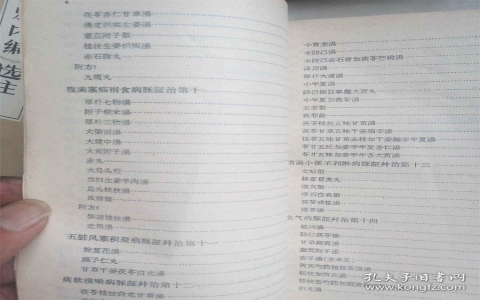 茯苓杏仁甘草湯
橘皮枳实生姜湯
薏苡附子散
桂枝生姜枳实湯
赤石脂丸
附方:
九痛丸
腹滿寒疝宿食病脉証治第十
厚朴七物湯
附子粳米湯
厚朴三物湯
大柴胡湯
大建中湯
大黄附子湯
赤丸
大烏头煎
当归生姜羊肉湯
烏头桂枝湯
瓜蒂散
附方:
柴胡桂枝湯
走馬湯
五脏风寒积聚病脉証幷治第十一
旋复花湯
麻子仁丸
甘草干姜茯苓白朮湯
痰飲咳嗽病脉証幷治第十二
茯苓桂枝白朮甘草湯
小青龙湯
木防己湯
木防己去石膏加茯苓芒硝湯
泽泻湯
厚朴大黄湯
小半夏湯
防己椒目葶藶大黄丸
小半夏加茯苓湯
五苓散
茯苓飲
苓甘五味加姜辛半夏杏仁湯
苓甘五味加姜辛半杏大黄湯
消渴小便不利淋病脉証幷治第十三
文蛤散
栝蔞瞿麦丸
蒲灰散
滑石白魚散
茯苓戎盐湯
猪苓湯
水气病脉証幷治第十四
越婢湯
防己茯苓湯
甘草麻黄湯
麻黄附子湯
杏子湯
孔夫子旧书网
www.kongfz.com